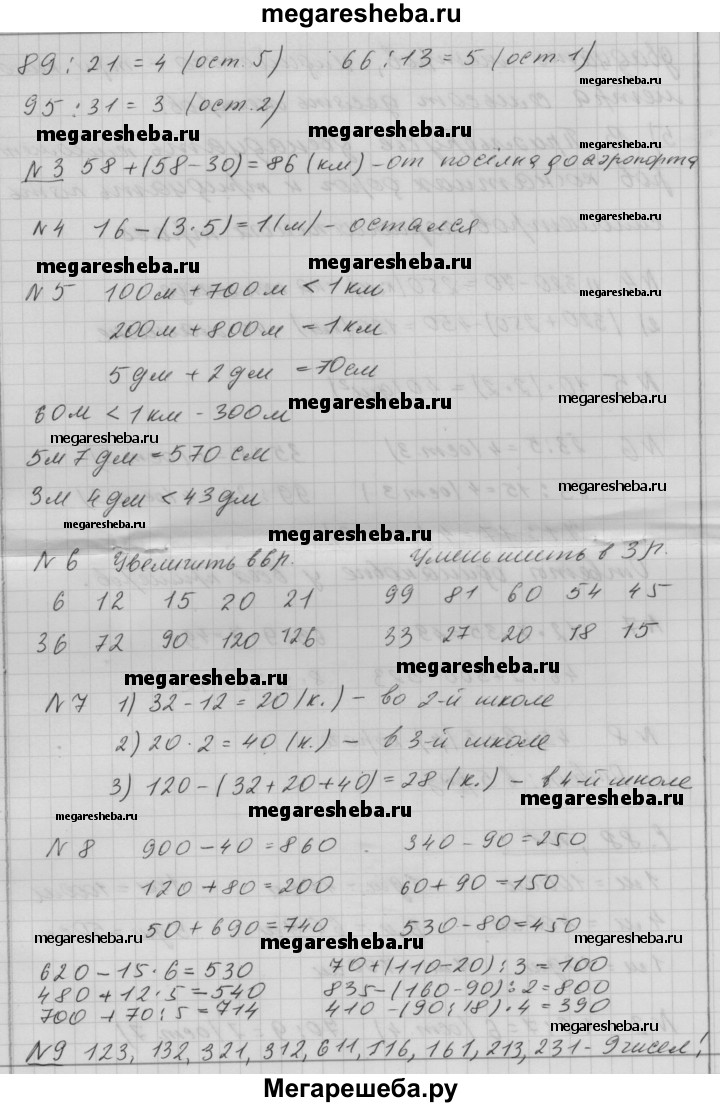 megaresheba.ru
89 : 21 = 4 (ост. 5) 66 : 13 = 5 (ост. 1)
megaresheba.ru
95 : 31 = 3 (ост. 2)
megaresheba.ru megaresheba.ru
N 3 58 + (58 - 30) = 86 (км) - от посёлка до аэропорта
N 4 16 - (3 · 5) = 1 (м) - остался
megaresheba.ru megaresheba.ru
N 5 100м + 700м < 1 км
200м + 800м = 1км
5 дм + 2 дм = 70см
megaresheba.ru
60м < 1 км - 300м
megaresheba.ru megaresheba.ru
5м 7 дм = 570 см
3м 4 дм < 43 дм
megaresheba.ru megaresheba.ru
N 6 Увеличить в 6 р. Уменьшить в 3 р.
megaresheba.ru
6 12 15 20 21 99 81 60 54 45
36 72 90 120 126 33 27 20 18 15
megaresheba.ru megaresheba.ru
N 7 1) 32 - 12 = 20 (к.) - во 2-й школе
2) 20 · 2 = 40 (к.) - в 3-й школе
3) 120 - (32 + 20 + 40) = 28 (к.) - в 4-й школе
megaresheba.ru megaresheba.ru megaresheba.ru
N 8 900 - 40 = 860 340 - 90 = 250
120 + 80 = 200 60 + 90 = 150
50 + 690 = 740 530 - 80 = 450
megaresheba.ru megaresheba.ru megaresheba.ru
620 - 15 · 6 = 530 70 + (110 - 20) : 3 = 100
480 + 12 · 5 = 540 835 - (160 - 90) : 2 = 800
700 + 70 : 5 = 714 410 - (90 : 18) · 4 = 390
megaresheba.ru megaresheba.ru
N9 123, 132, 321, 312, 611, 116, 161, 213, 231 - 9 чисел!
Мегарешеба.ру